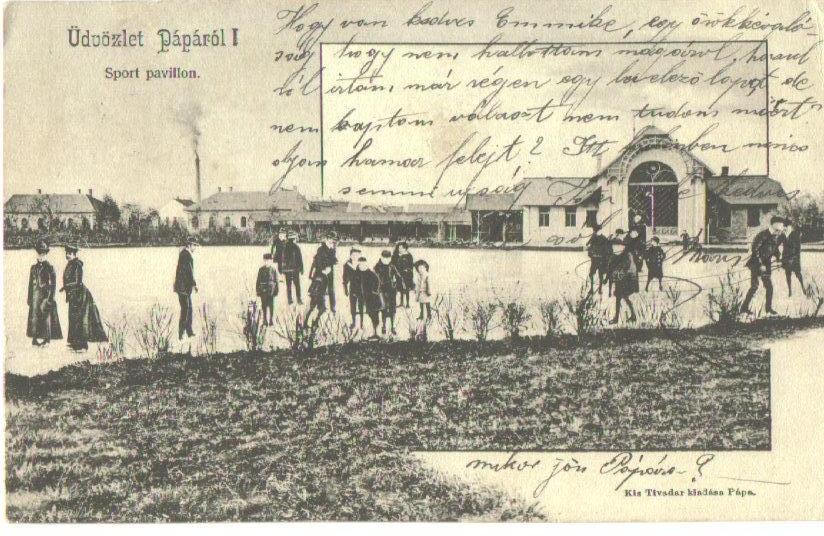 Üdvözlet Pápáról!
Sport pavillon.
Hogy van kedves Emmike, egy örökkévaló-
ság hogy nem hallottam magáról, hosul
ról irtam már régen egy levelező lapot de
nem kaptam választ nem tudom miért
olyan hamar felejt? Itt különben nincs
semmi ujság
kedves
Maris
mikor jön Pápára?
Kis Tivadar kiadása Pápa.